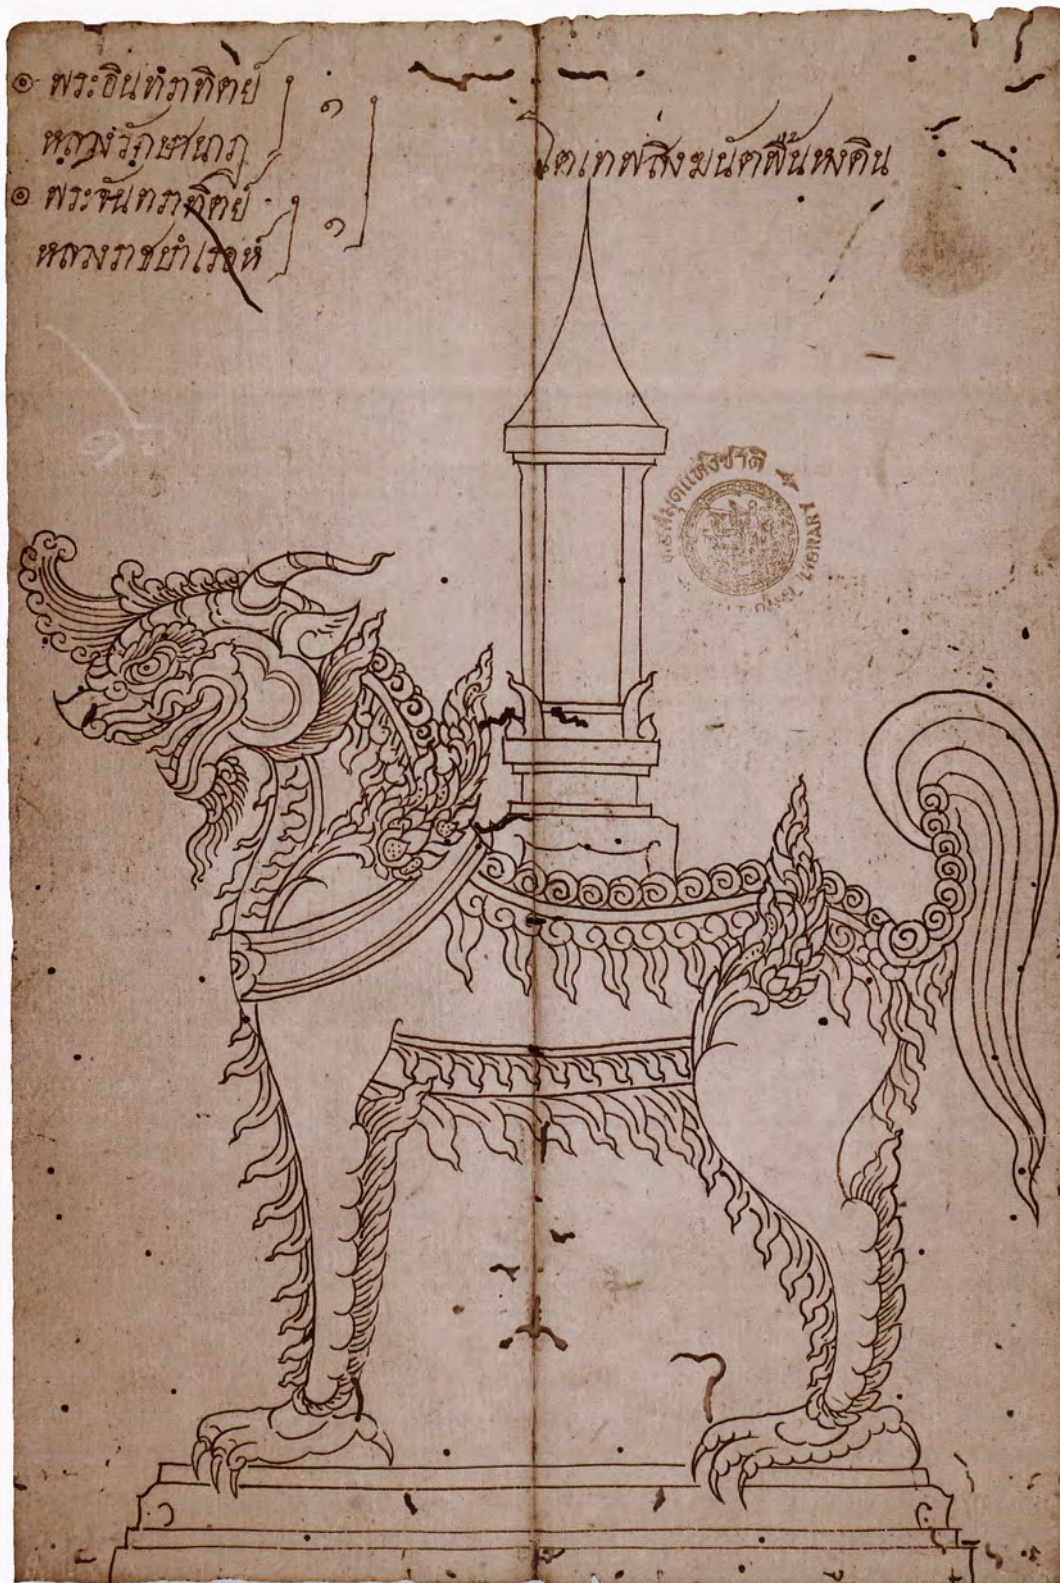 ๏ พระอินทราทิตย์
หลวงรักษานาภ
๏ พระจันทราทิตย์
หลวงราชบำเรอห์
๑
๑
โตเทพสิงฆนัตพื้นหงดิน
หอสมุดแห่งชาติ
LIBRARY